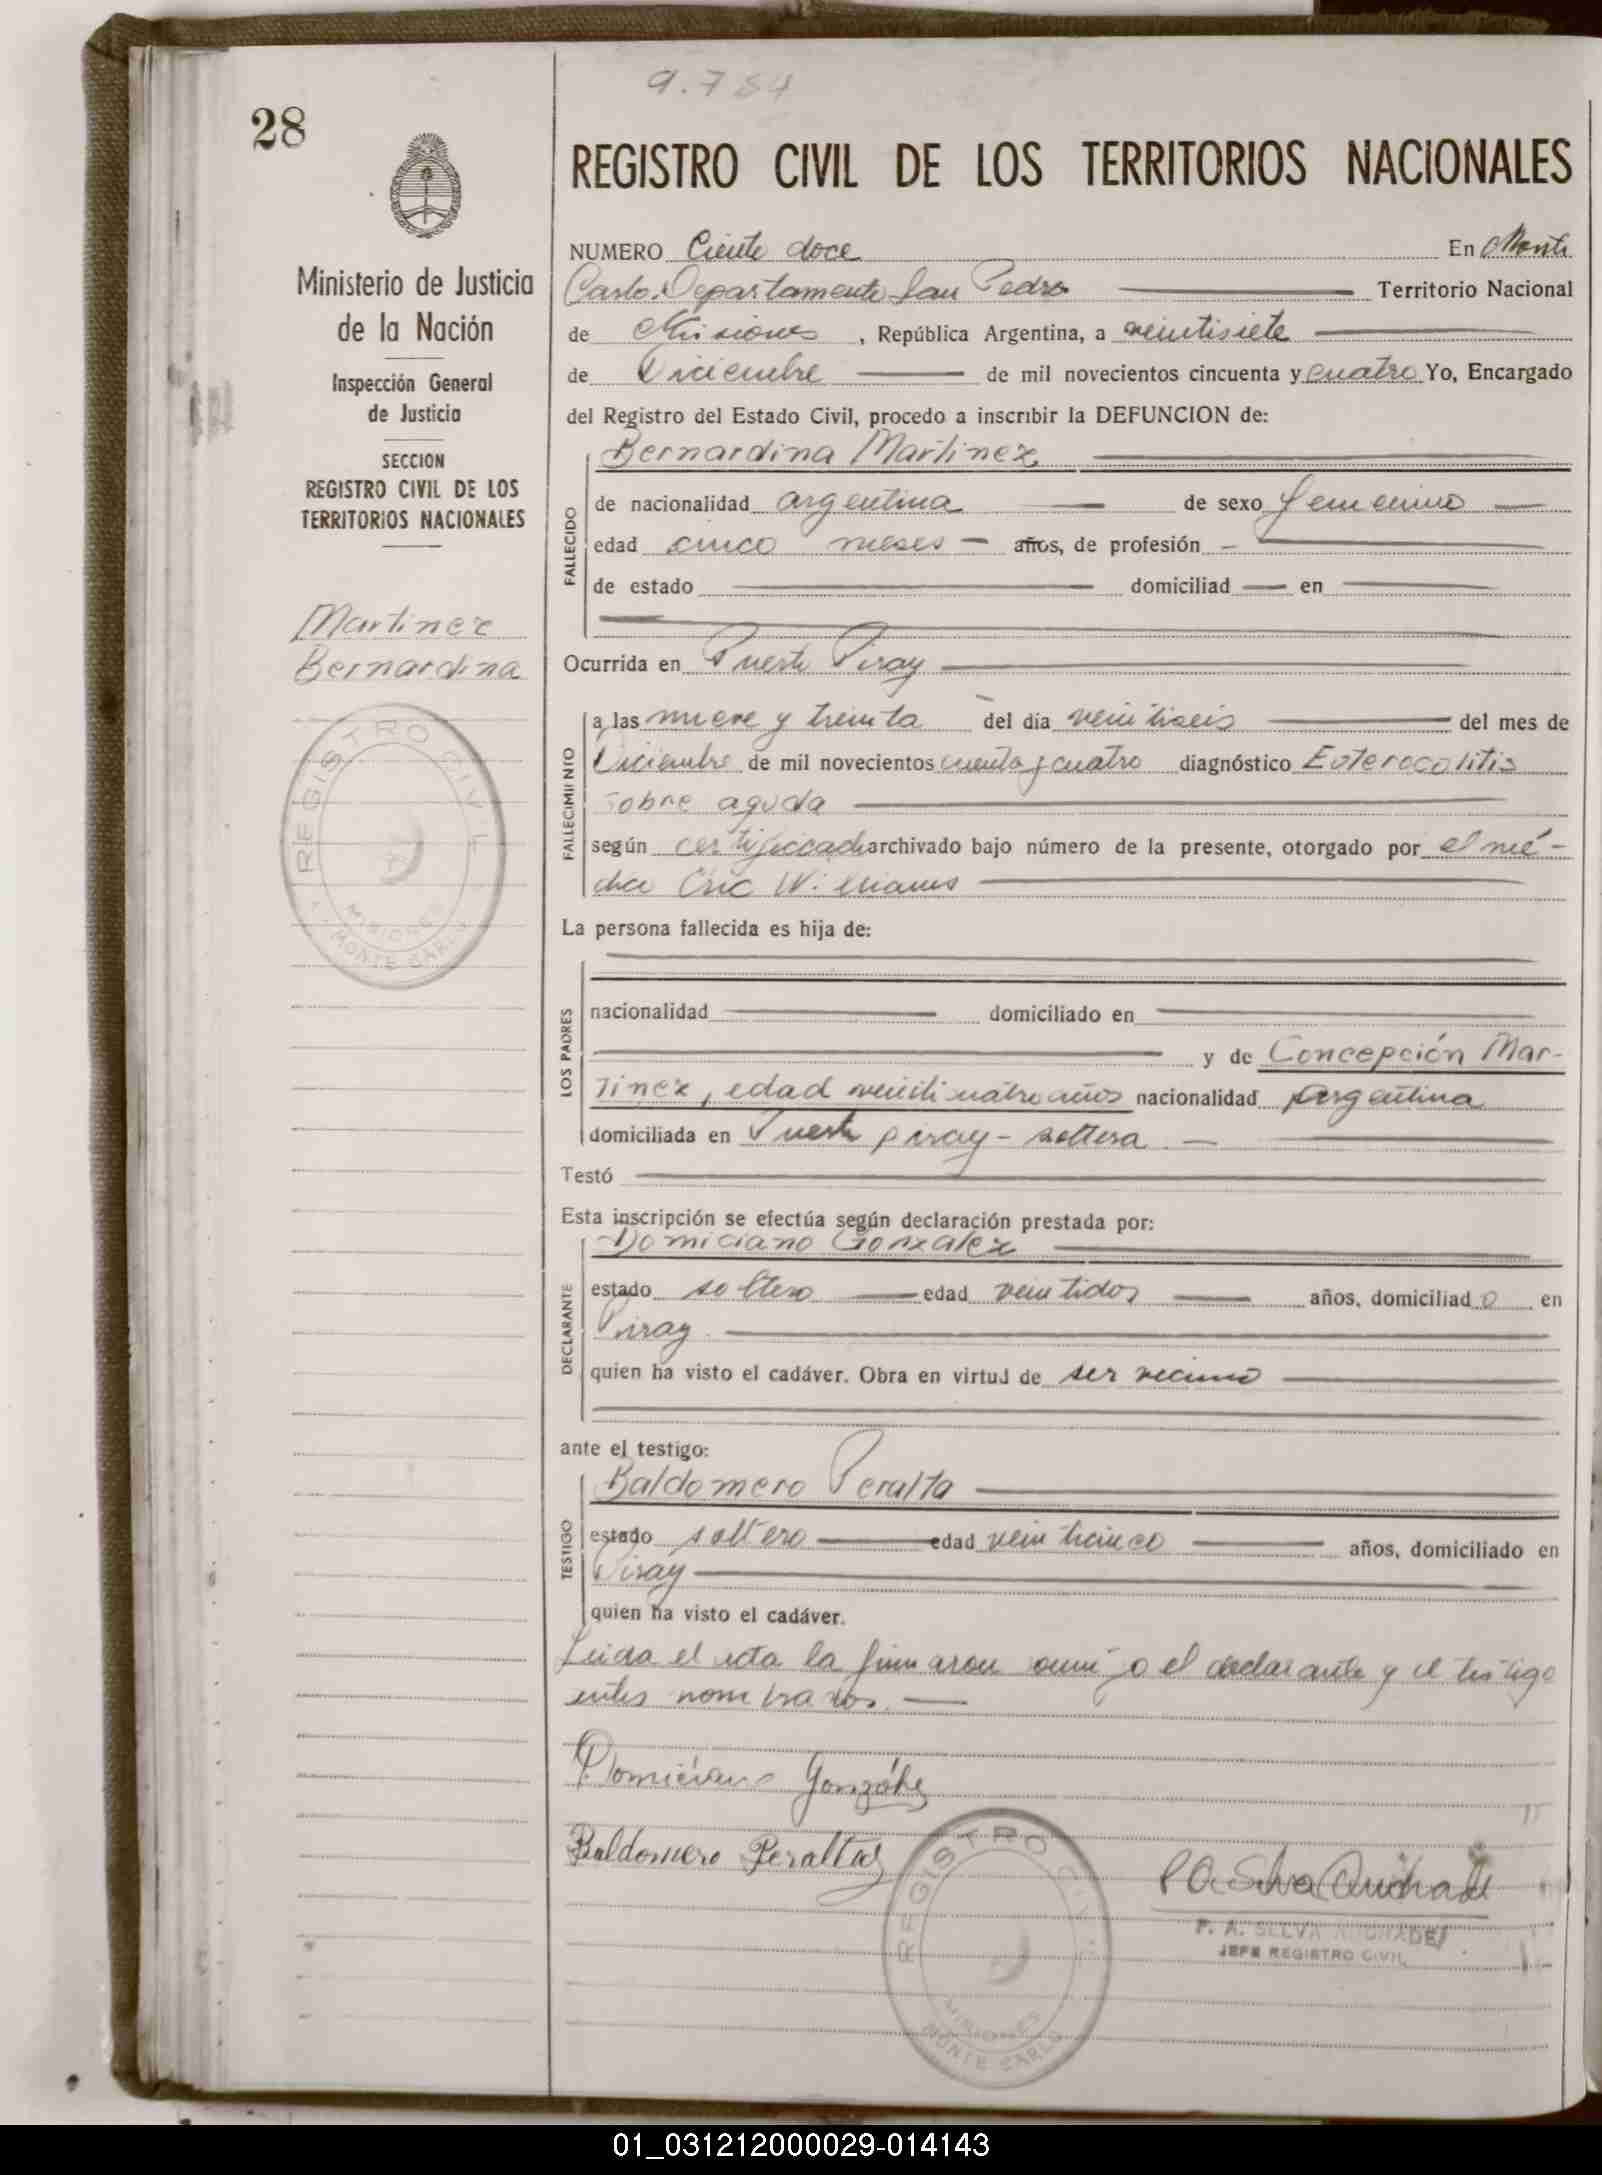 9.784
28
REGISTRO CIVIL DE LOS TERRITORIOS NACIONALES
Ministerio de Justicia
de la Nación
Inspección General
de Justicia
SECCION
REGISTRO CIVIL DE LOS
TERRITORIOS NACIONALES
Martinez
Bernardina
REGISTRO CIVIL
MISIONES
MONTE CARLO
NUMERO Ciento doce En Monte
Carlo. Departamento San Pedro Territorio Nacional
de Misiones, República Argentina, a veintisiete
de Diciembre de mil novecientos cincuenta y cuatro Yo, Encargado
del Registro del Estado Civil, procedo a inscribir la DEFUNCION de:
FALLECIDO
Bernardina Martinez
de nacionalidad argentina de sexo femenino
edad cinco meses - años, de profesión -
de estado domiciliad en
Ocurrida en Puerto Piray
FALLECIMIENTO
a las nueve y treinta del día veintiseis del mes de
Diciembre de mil novecientos cuenta y cuatro diagnóstico Enterocolitis
sobre aguda
según certificado archivado bajo número de la presente, otorgado por el mé-
dico Eric Williams
La persona fallecida es hija de:
LOS PADRES
nacionalidad domiciliado en
y de Concepción Mar-
tinez, edad veinticuatro años nacionalidad Argentina
domiciliada en Puerto piray - soltera
Testó
Esta inscripción se efectúa según declaración prestada por:
DECLARANTE
Domiciano Gonzalez
estado soltero edad veintidos años, domiciliado en
Piray
quien ha visto el cadáver. Obra en virtud de ser vecino
ante el testigo:
TESTIGO
Baldomero Peralta
estado soltero edad veinticinco años, domiciliado en
Piráy
quien ha visto el cadáver.
Leida el acta la firmaron el declarante y el testigo
antes nombrados.
Domiciano González
Baldomero Peralta
REGISTRO CIVIL
MISIONES
MONTE CARLO
P. A. SELVA ANDRADE
JEFE REGISTRO CIVIL
01_031212000029-014143